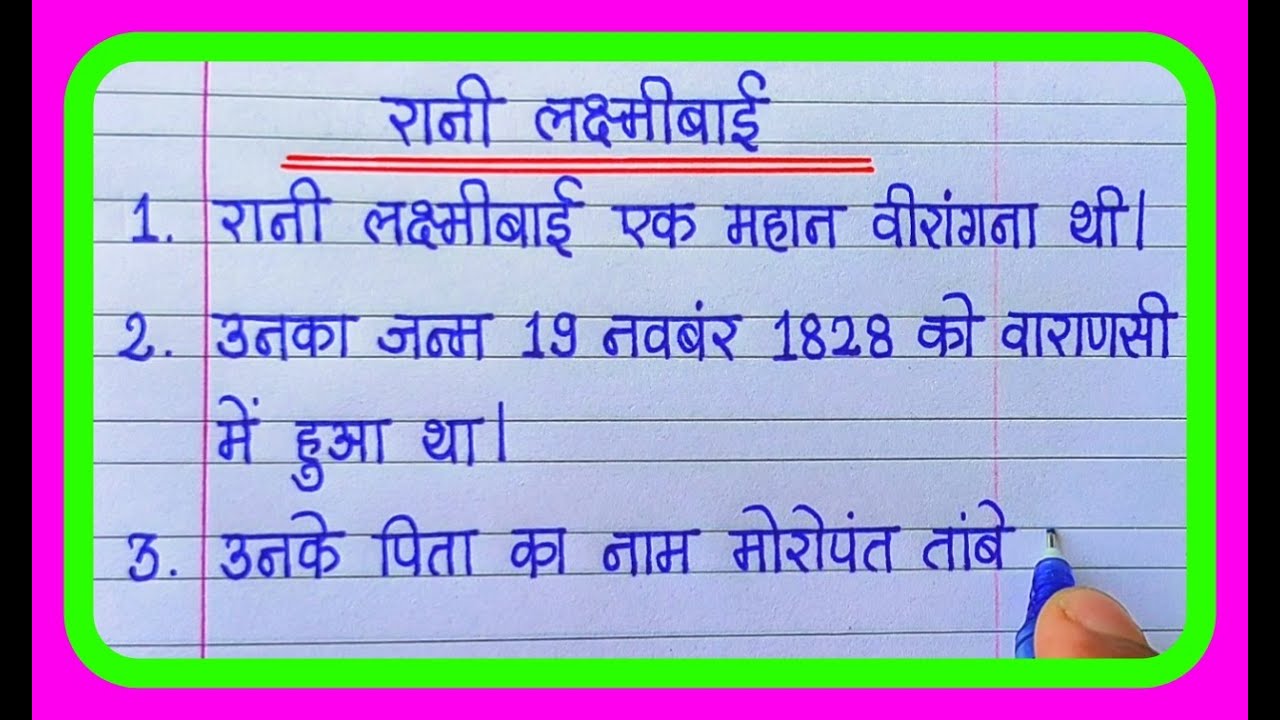 रानी लक्ष्मीबाई
1. रानी लक्ष्मीबाई एक महान वीरांगना थी।
2. उनका जन्म 19 नवबंर 1828 को वाराणसी
में हुआ था।
3. उनके पिता का नाम मोरोपंत तांबे